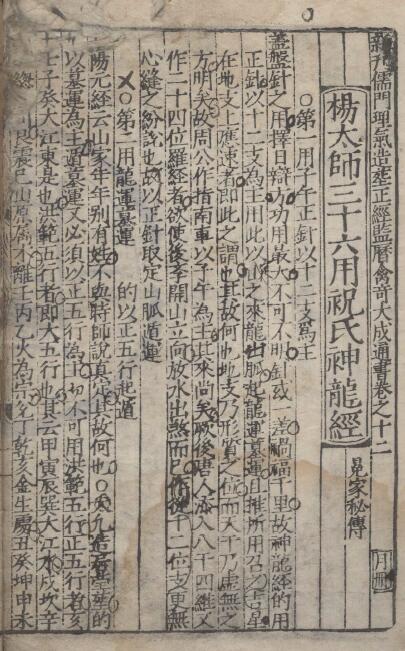 新刊儒門理氣造塟正經監曆禽奇大成通書卷之十二
楊太師三十六用祝氏神龍經
晃家秘傳
月刪
○第一用子午正針以十二支為主
盖盤針之用擇日辯方功用最大不可不明針或差禍福千里故神龍經的用
正針以十二支為主用此以之來龍出脈起龍運墓運且推所用召之吉星
在地支上應速者即此之謂也其故何也地支乃形質之位而天干乃虛無之
方明矣故周公作指南車以子午為其來尚矣厥後唐人添入八干四維又
作二十四位羅經者欲使後李開山立向放水出煞而已作從十二位支更無
心縫之紛說也故以正針取定山脈遁運
○第二用龍運墓運 的以正五行起遁
陽元經云山家年年別有姓不與特師說真其故何也○夫九造塟的
以墓運為主遁墓運又必須以正五行為切不可用洪範五行正五行者亥
七子癸大江東是也洪範五行者即大五行也其云甲寅辰巽大江水戌坎辛
艮震巳山原属木離壬丙乙火為宗兌丁乾亥金生處丑癸坤申未